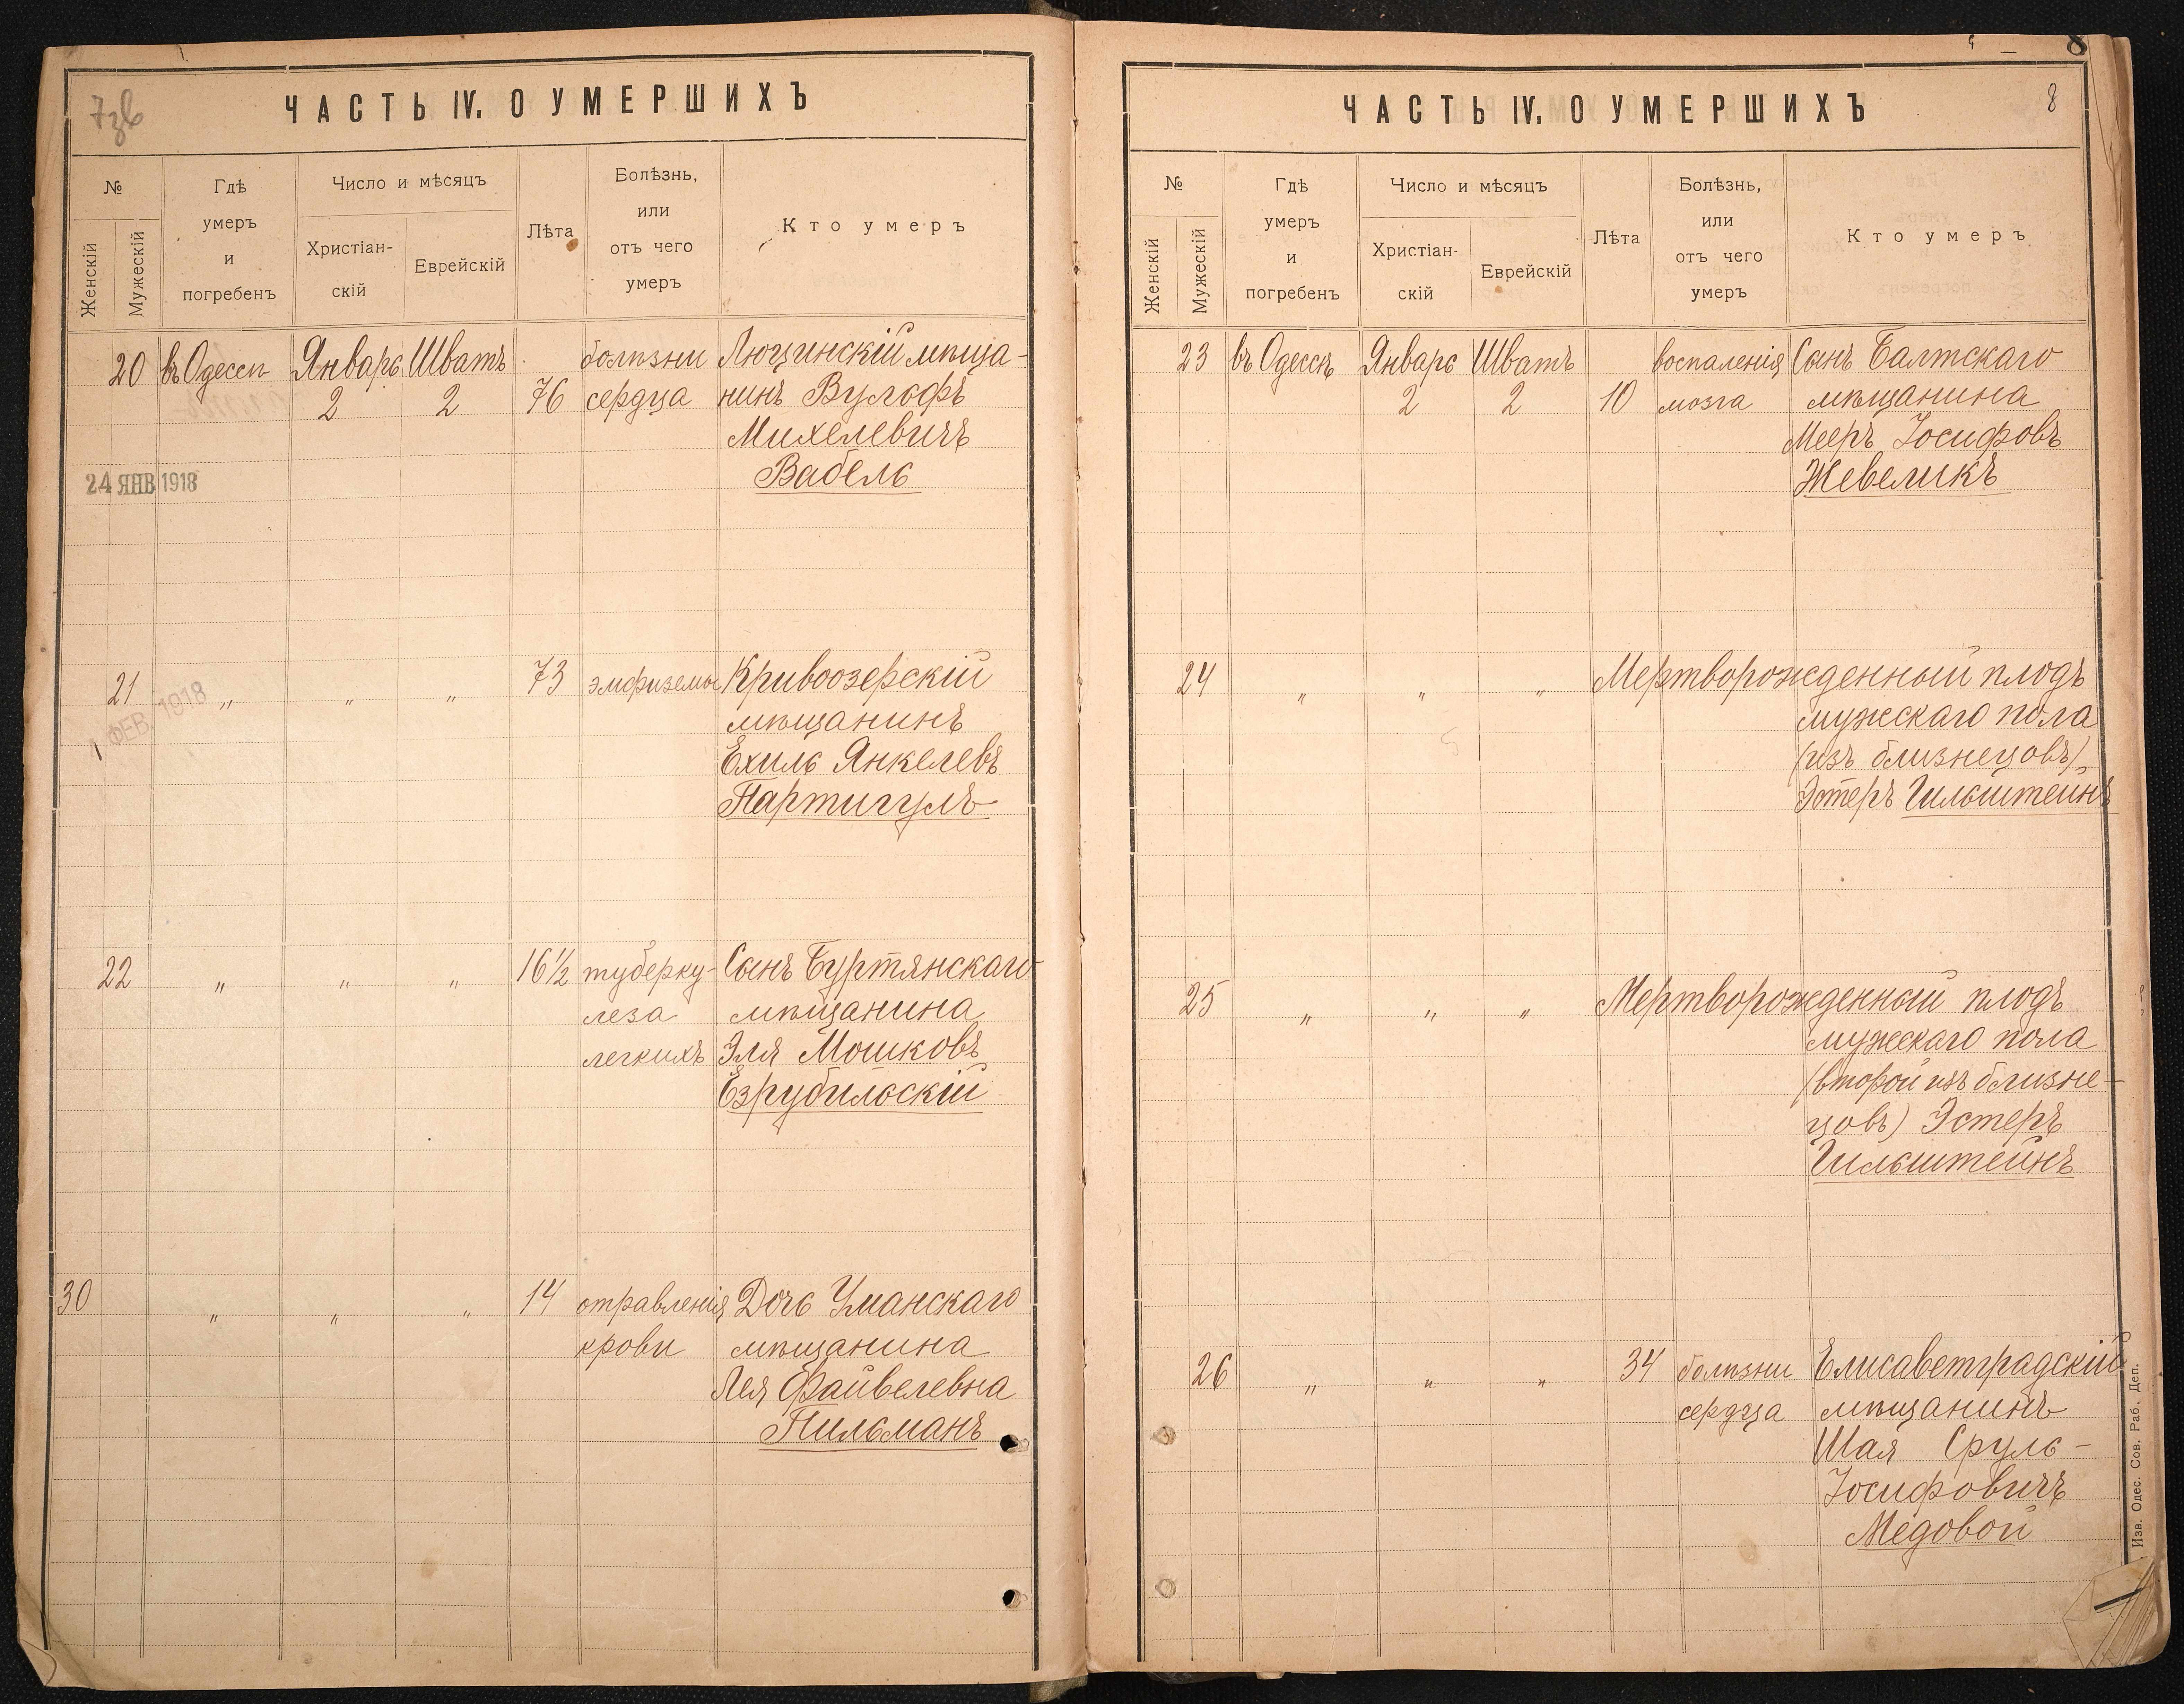 7зв
ЧАСТЬ IV. О УМЕРШИХЪ
№
Женскій
Мужескій
Гдѣ
умеръ
и
погребенъ
Число и мѣсяцъ
Христіан-
скій
Еврейскій
Лѣта
Болѣзнь,
или
отъ чего
умеръ
Кто умеръ
20 въ Одессѣ Январь Шватъ болѣзни Люцинскій мѣща-
2 2 76 сердца нинъ Вульфъ
Михелевичъ
Вабель
24 ЯНВ 1918
21 „ „ „ 73 эмфиземы Кривоозерскій
мѣщанинъ
1 ФЕВ 1918
Ехиль Янкелевъ
Партигулъ
22 „ „ „ 16½ туберку- Сынъ Буртянскаго
леза мѣщанина
легкихъ Эля Мошковъ
Езрубильскій
30 „ „ „ 14 отравленія Дочь Уманскаго
крови мѣщанина
Лея Файвелевна
Пильманъ
8
8
ЧАСТЬ IV. О УМЕРШИХЪ
№
Женскій
Мужескій
Гдѣ
умеръ
и
погребенъ
Число и мѣсяцъ
Христіан-
скій
Еврейскій
Лѣта
Болѣзнь,
или
отъ чего
умеръ
Кто умеръ
23 въ Одессѣ Январь Шватъ воспаленія Сынъ Балтскаго
2 2 10 мозга мѣщанина
Мееръ Іосифовъ
Жевеликъ
24 „ „ „ Мертворожденный плодъ
мужскаго пола
(изъ близнецовъ)
Эстеръ Гильштейнъ
25 „ „ „ Мертворожденный плодъ
мужескаго пола
(второй изъ близне-
цовъ) Эстеръ
Гильштейнъ
26 „ „ „ 34 болѣзни Елисаветградскій
сердца мѣщанинъ
Шая Сруль-
Іосифовичъ
Медовой
Изв. Одес. Сов. Раб. Деп.